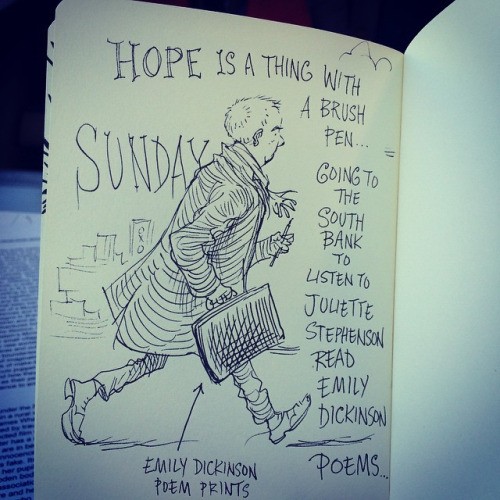 HOPE IS A THING WITH
A BRUSH
PEN...
SUNDAY
GOING TO
THE
SOUTH
BANK
TO
LISTEN TO
JULIETTE
STEPHENSON
READ
EMILY
DICKINSON
POEMS...
EMILY DICKINSON
POEM PRINTS